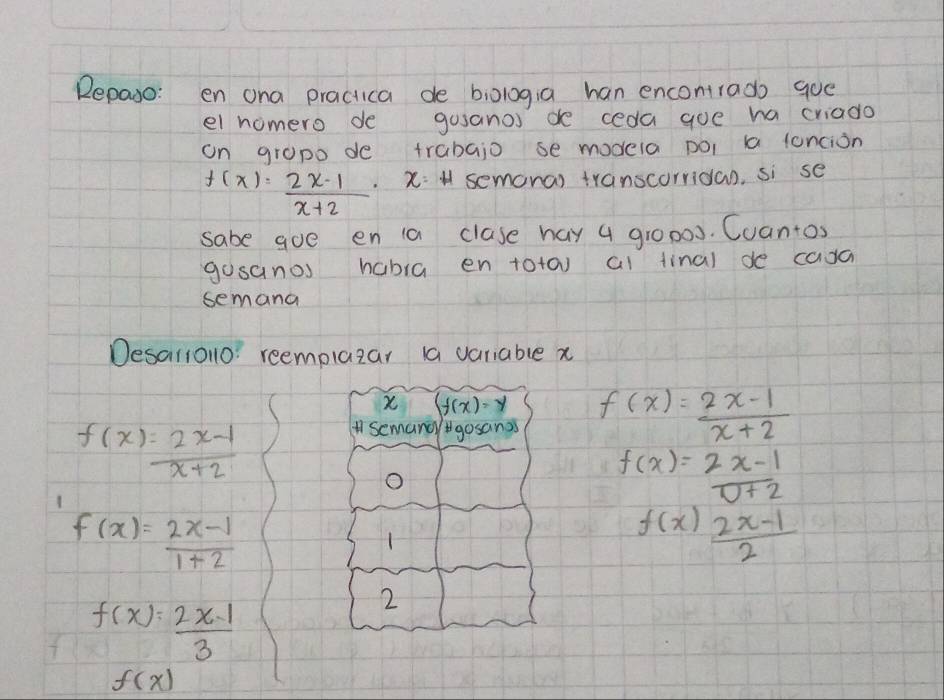 Repaso: en una practica de biologia han encontrado que
el numero de gusanos de ceda que ha criado
un grupo de trabajo se modela por la función
f(x) = 2x-1 / x+2 . x = # semanas transcurridas. si se
sabe que en la clase hay 4 grupos. Cuantos
gusanos habra en total al final de cada
semana
Desarrollo: reemplazar la variable x
f(x) = 2x-1 / x+2
f(x) = 2x-1 / 1+2
f(x) = 2x-1 / 3
f(x)
x f(x) = y
# semanas # gusanos
0
1
2
f(x) = 2x-1 / x+2
f(x) = 2x-1 / 0+2
f(x) 2x-1 / 2